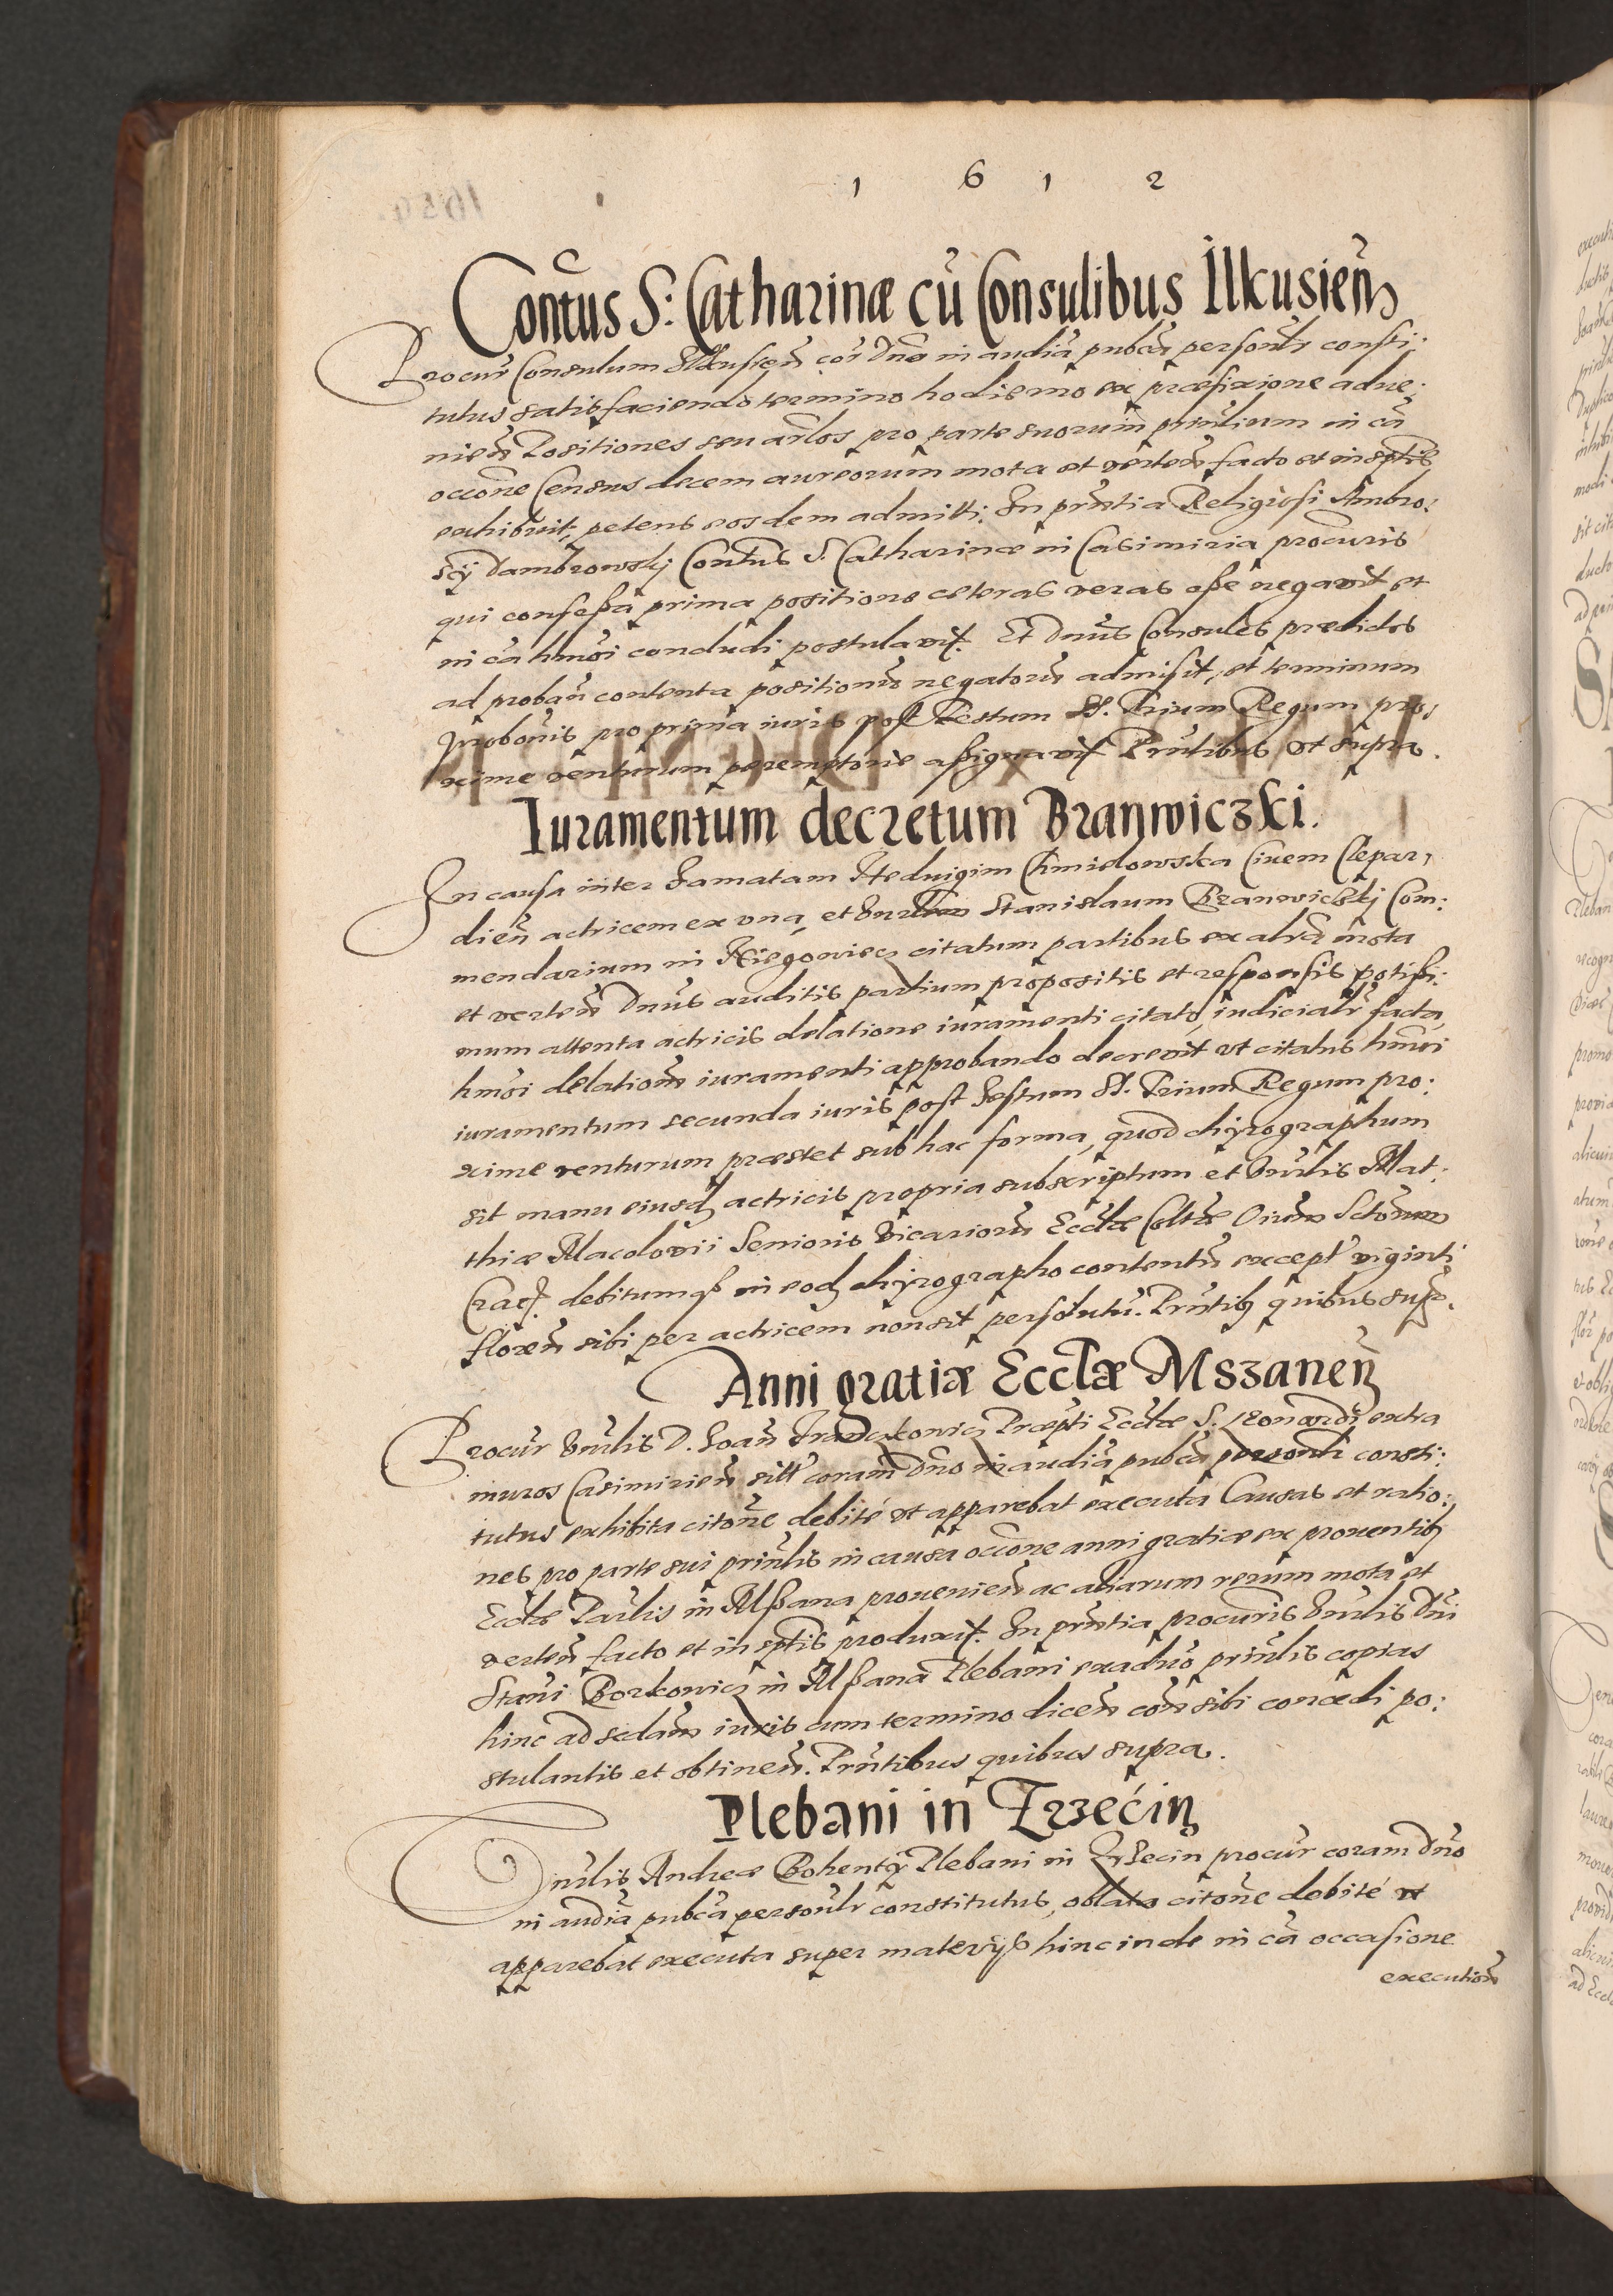 1 6 1 2
Contus S: Catharinæ cū Consulibus Ilkusien̄
Procūr Consulum Ilkusien̄ cor̄ Dn̄o in audiā pubcā personl̄r consti:
tutus satisfaciendo termino hodierno ex præfixione adue:
nien̄ Positiones seu arlos pro parte suorum prin̄lium in cā
occōne Census decem aureorum mota et verten̄ facto et in sptis
exhibuit, petens eosdem admitti. In prn̄tia Religiosi Ambro:
sij Dambrowskj Contus S. Catharinæ in Casimiria procuris
qui confessa prima positione cæteras veras esse negavit et
in cā hmōi concludi postulavit. Et Dnūs Consules prædictos
ad proban̄ contenta positionū negatorū admisit, et terminum
probōnis pro prima iuris post Festum SS. Trium Regum pro,
xime venturum peremptorie assignavit Prn̄tibus vt supra.
Iuramentum decretum Branwiczki.
In causa inter Famatam Hedvigim Chmielowska Ciuem Clepar,
dien̄ actricem ex vna, et Stanislaum Branwiczkj Com:
mendarium in Niegowiecz citatum partibus ex altrā mota
et verten̄ Dnūs auditis partium propositis et responsis potissi:
mum attenta actricis delatione iuramenti citato, iudicialr̄ facta,
hmōi delationē iuramenti approbando decrevit vt citatus hmōi
iuramentum secunda iuris post Festum SS. Trium Regum pro:
xime venturum præstet sub hac forma, quod chyrographum
sit manu eiusd actricis propria subscriptum et Vnr̄lis Mat:
thiæ Macolovii Senioris Vicariorū Ecclæ Coltæ Oīum Sctōrum
Crac. debitumq in eod chyrographo contentū except viginti
floren̄ sibi per actricem non sit persolutū. Prn̄tib quibus supr̄.
Anni gratiæ Ecclæ Mszanen̄
Procūr Vnr̄lis D. Joan̄ Præpti Ecclæ S. Leonardi extra
muros Casimirien̄ sitt coram Dn̄o in audiā pubcā personlr̄ consti:
tutus exhibita citōne debitè vt apparebat executa Causas et ratio:
nes pro parte sui prin̄lis in causa occōne anni gratiæ ex prouentib
Ecclæ Parlis in Mssana prouenien̄ ac aliarum rerum mota et
verten̄ facto et in sptis produxit. In prn̄tia procuris Vnr̄lis Dn̄i
Stanī Borkowicz in Mssana Plebani ex aduo prin̄lis copias
hinc ad sedam̄ iuris cum termino dicen̄ cōn̄ sibi concedi po:
stulantis et obtinen̄. Prn̄tibus quibus supra.
Plebani in Trzećin
Vnr̄lis Andreæ Plebani in Trzecin procūr coram Dn̄o
in audiā pubcā personlr̄ constitutus, oblata citōne debitè vt
apparebat executa super materijs hinc inde in cā occasione
execution̄